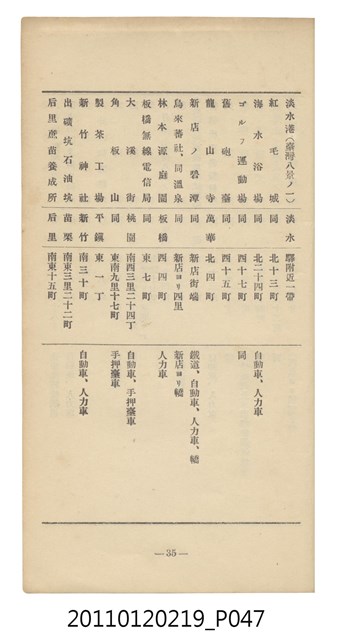 淡水港（臺灣八景ノ一） 淡水 驛附近一帶
紅毛城 同 北十三町
海水浴場 同 北二十四町 自動車、人力車
ゴルフ運動場 同 北十七町 同
舊砲臺 同 西十五町
龍山寺 萬華 北四町
新店ノ碧潭 同 新店街端 鐵道、自動車、人力車、轎
烏來蕃社、同溫泉 同 新店ヨリ四里 新店ヨリ轎
林本源庭園 板橋 西四町 人力車
板橋無線電信局 同 東七町
大溪街 桃園 南西三里二十四丁 自動車、手押臺車
角板山 同 東南九里十七町 手押臺車
製茶工場 平鎭 東一丁
新竹神社 新竹 南三十町 自動車、人力車
出礦坑石油坑 苗栗 南東三里二十二町
后里蔗苗養成所 后里 南東十五町
—35—
20110120219_P047